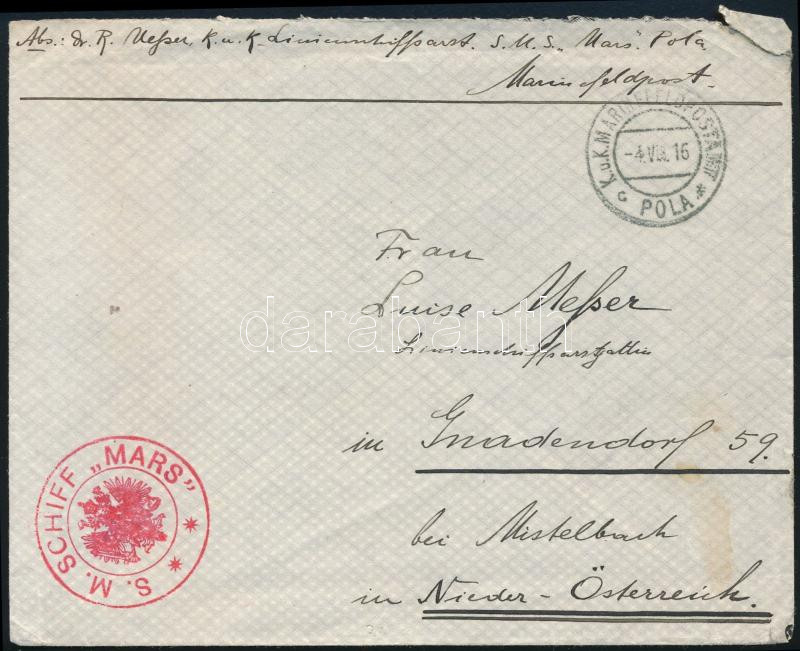 Abs.: Dr. R. Meßer, K. u. K. Linienschiffsarzt. S. M. S. „Mars“. Pola
Marinefeldpost.
K.u.K. MARINEFELDPOSTAMT
-4.VIII.16
c POLA *
Frau
Luise Meßer
Linienschiffsarztgattin
in Gnadendorf 59.
bei Mistelbach
in Nieder-Österreich.
S. M. SCHIFF „MARS“
darabanth